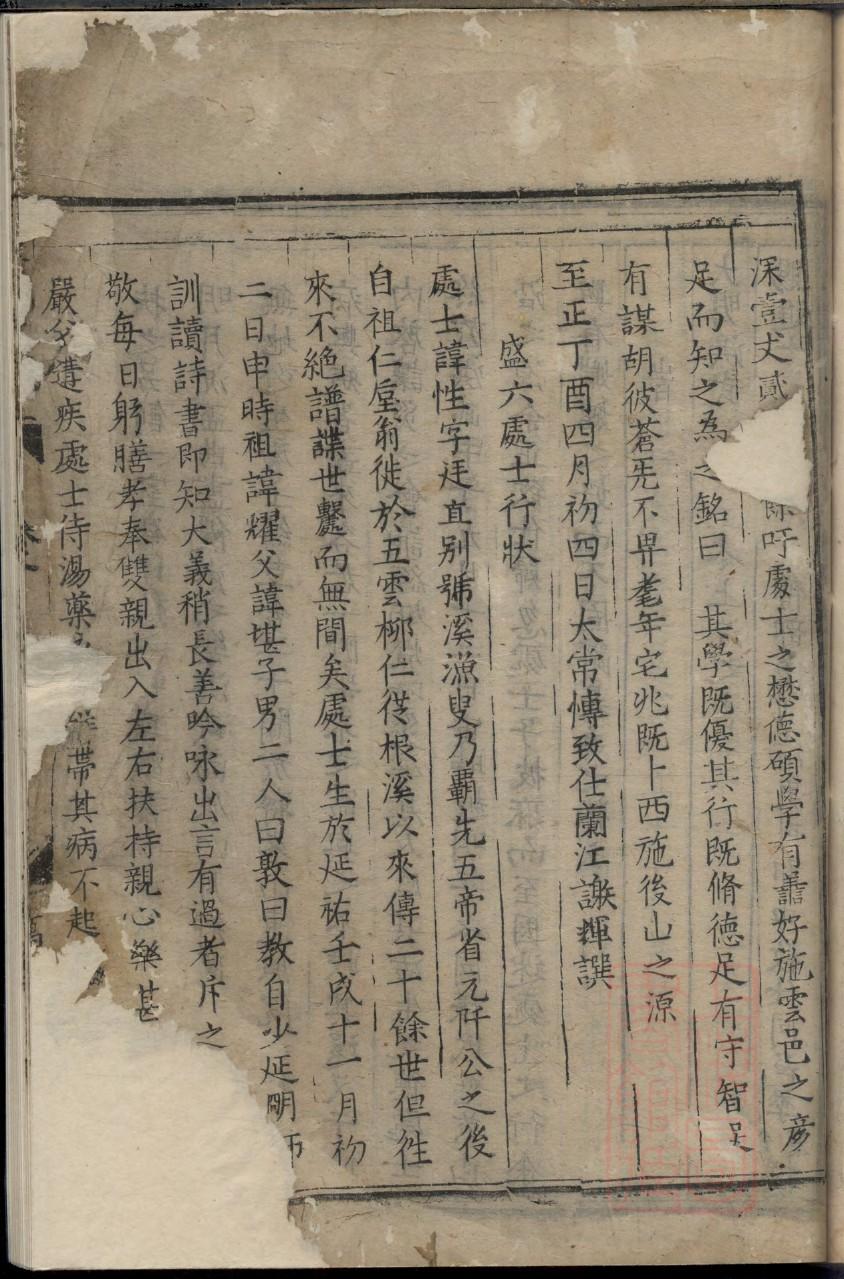 深壹丈貳 餘吁處士之懋德碩學有譱好施雲邑之彦
足而知之為之銘曰 其學既優其行既脩德足有守智足
有謀胡彼蒼旡不畀耄年宅兆既卜西施後山之源
至正丁酉四月初四日太常慱致仕蘭江謝輝譔
盛六處士行狀
處士諱性字廷直别號溪漁叟乃霸先五帝省元阡公之後
自祖仁堂翁徙於五雲栁仁徔根溪以來傳二十餘世但徃
來不絶譜諜世繫而無間矣處士生於延祐壬戍十一月初
二日申時祖諱燿父諱堪子男二人曰敦曰教自少延明师
訓讀詩書即知大義稍長善吟咏出言有過者斥之
敬每日躬膳孝奉雙親出入左右扶持親心樂甚
嚴父遘疾處士侍湯藥 帶其病不起